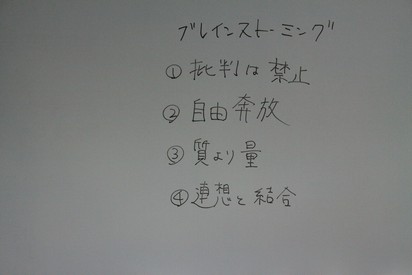 ブレインストーミング
①批判は禁止
②自由奔放
③質より量
④連想と結合